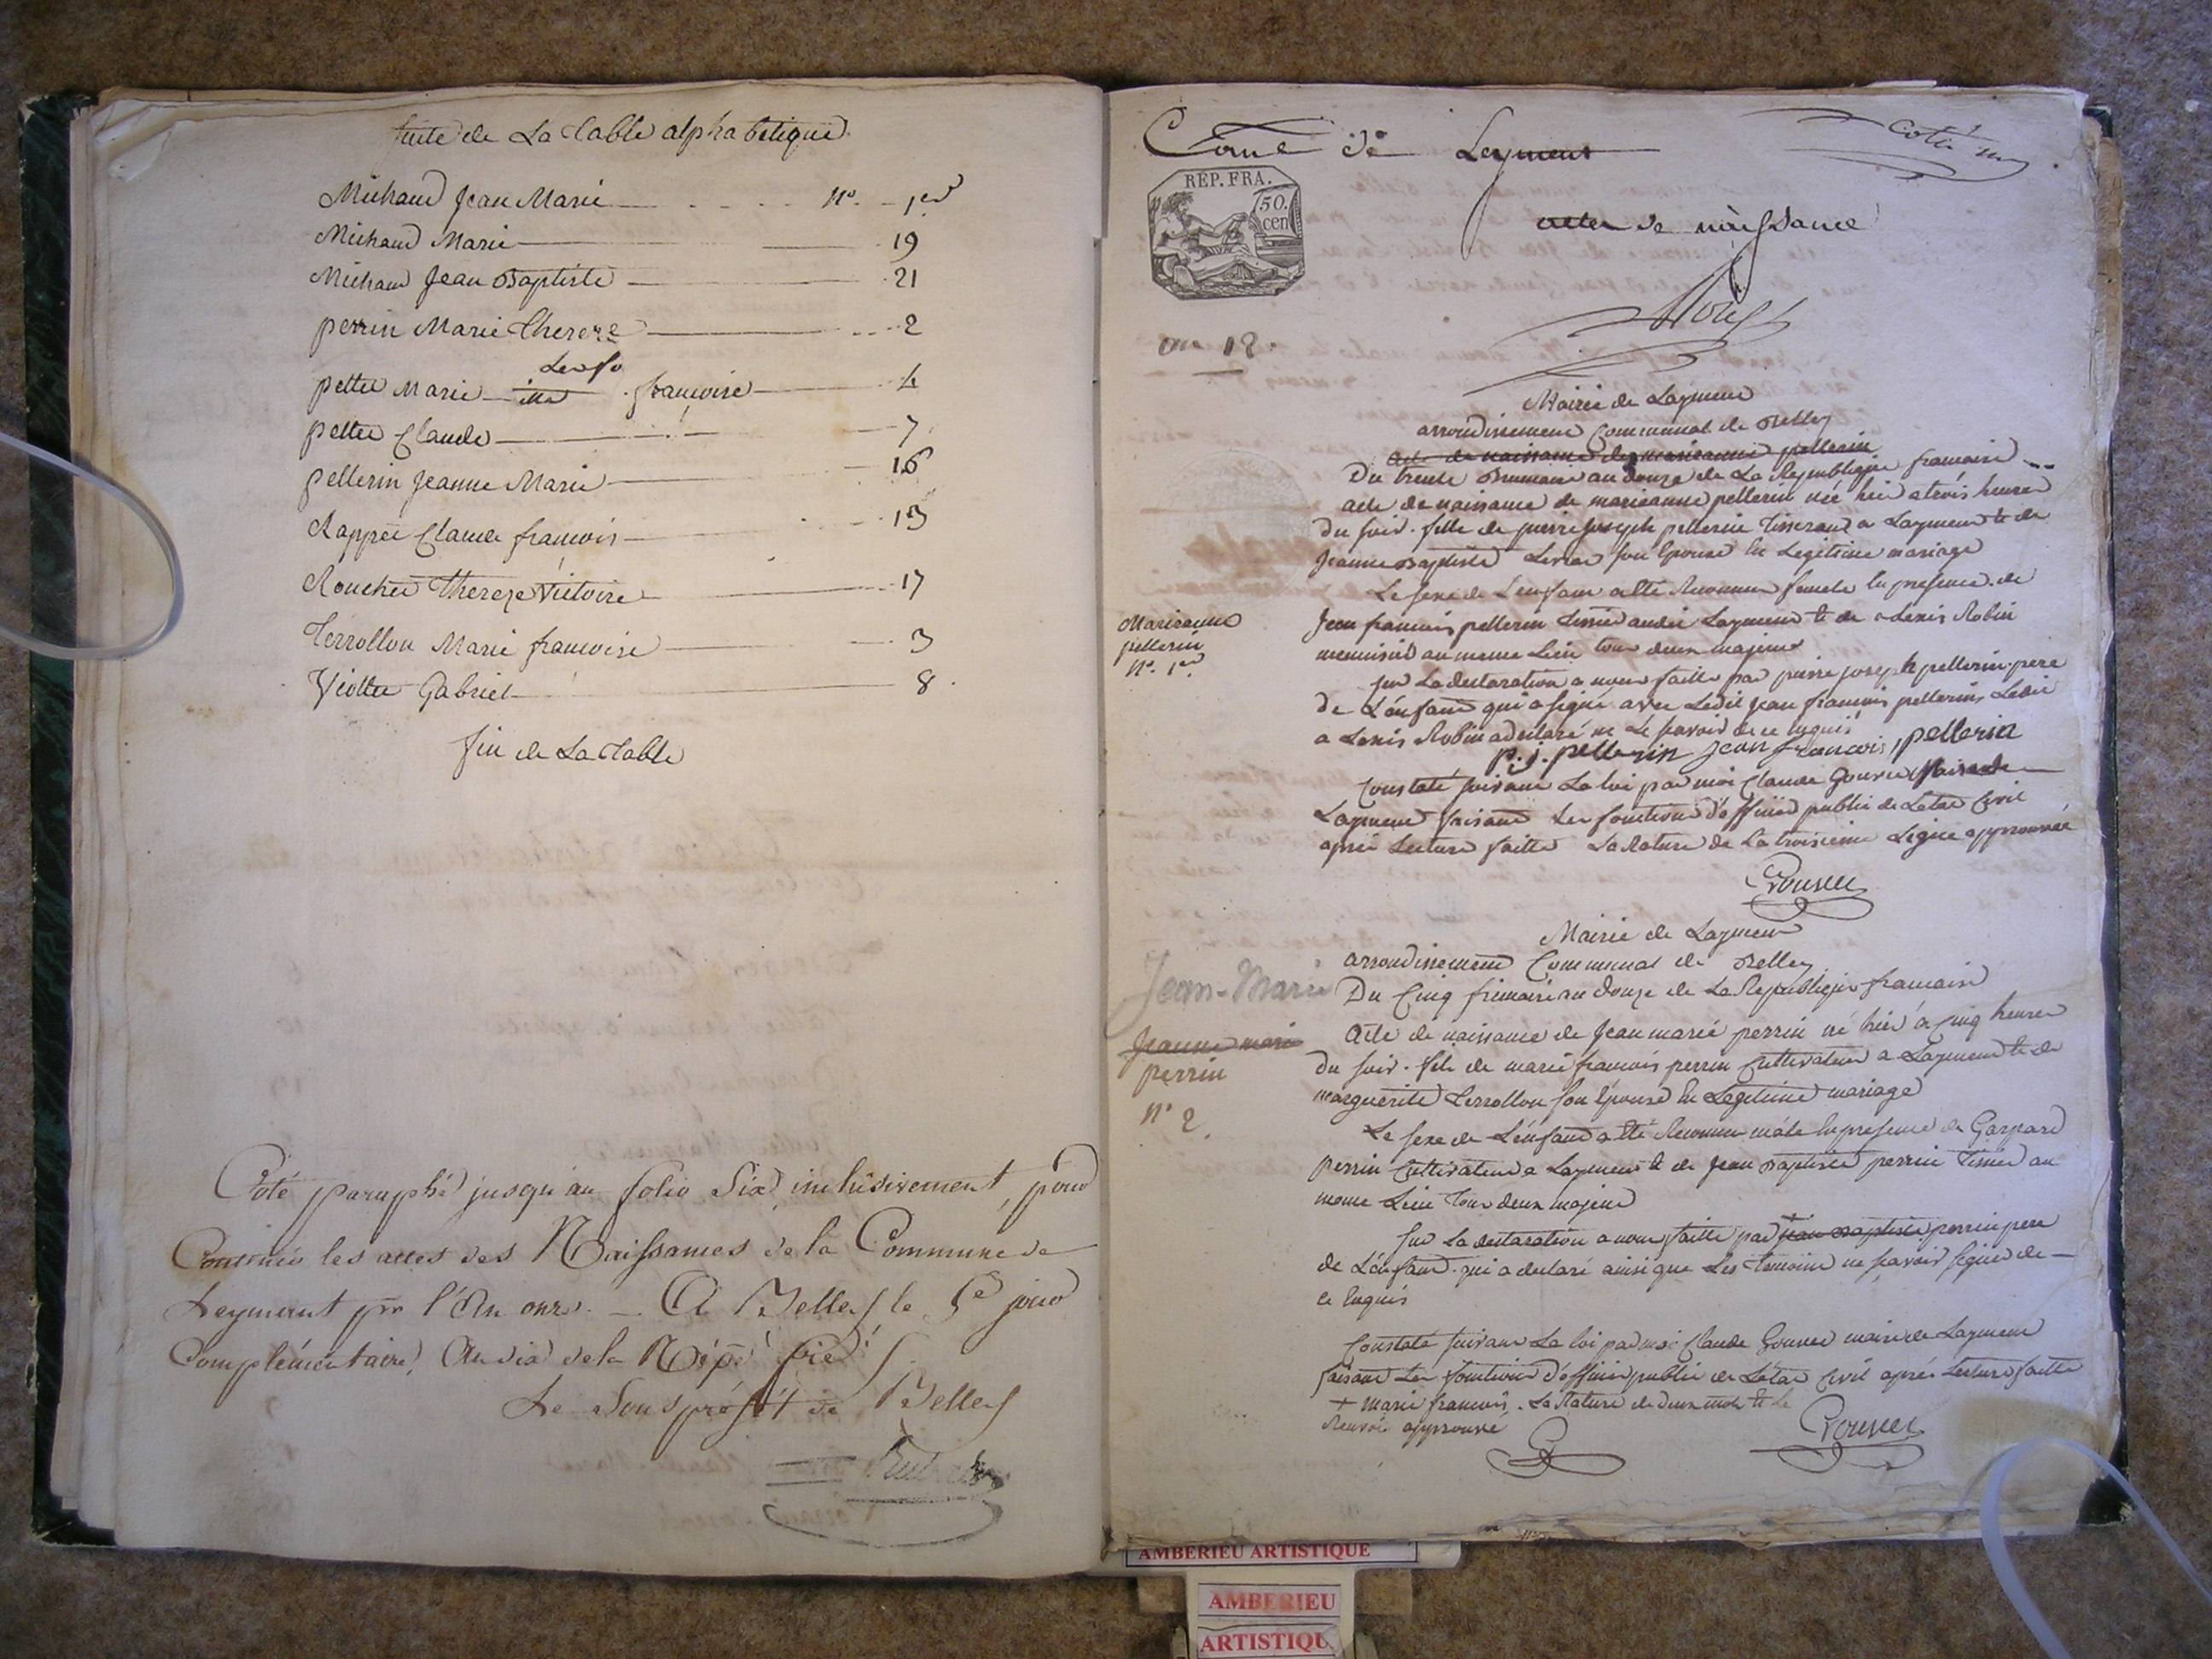 suite de La table alphabetique
Michaud Jean Marie n°. 1er
Michaud Marie 19
Michaud Jean Baptiste 21
perrin Marie Thereze 2
pettee Marie françoise 4
pettee Claude 7
pellerin Jeanne Marie 16
Rappée Claude francois 13
Rouchée Thereze Victoire 17
Terrollon Marie francoise 3
Viottee Gabriel 8
fin de La table
Coté paraphé jusqu'au folio Six inclusivement, pour
Contenir les actes des Naissances de la Commune de
Leyment pr l'An onze. A Belley le 5e jour
Complémentaire, An dix de la Répe.
Le Sous préfet de Belley
Comne de Leyment
Coté un
REP. FRA.
50.
cen
actes de naissance
an 12.
Mairie de Laymene
arrondissement Communal de Belley
acte de naissance de marieanne pellerin
Du trente Brumaire an douze de La Republique francaise
acte de naissance de marieanne pellerin née hier a trois heures
Du soir. fille de pierre joseph pellerin Tisserand a Laymene & de
Jeanne Baptiste son Epouse En Legitime mariage
Le sexe de L'enfant a Eté Reconnu femele En presence de
Marieanne
pellerin
n°. 1er
Jean francois pellerin Tissier audit Laymene & de alexis Robin
menuisier au meme Lieu tous deux majeurs
sur La declaration a nous faitte par pierre joseph pellerin pere
de L'enfant qui a signé avec Ledit Jean francois pellerin, Ledit
alexis Robin a declaré ne Le savoir de ce Enquis
p. j. pellerin jean francois pellerin
Constaté suivant La loi par moi Claude Gouvee Maire de
Laymene faisant Les fonctions d'officier public de L'etat Civil
après Lecture faitte La Rature de La troisieme Ligne approuvée
Gouvee
Mairie de Laymene
arrondissement Communal de Belley
Jean-Marie
Du Cinq frimaire an douze de La Republique francaise
Jeanne marie
perrin
n° 2.
Acte de naissance de Jean marie perrin né hier a Cinq heures
Du soir. fils de marie francois perrin Cultivateur a Laymene & de
marguerite Terrollon son Epouse En Legitime mariage
Le sexe de L'enfant a Eté Reconnu mâle En presence de Gaspard
perrin Cultivateur a Laymene & de Jean Baptiste perrin Tissier au
meme Lieu Tous deux majeurs
sur La declaration a nous faitte par + Jean Baptiste perrin pere
de L'enfant. qui a declaré ainsi que Les temoins ne savoir signer de
ce Enquis
Constaté suivant La loi par moi Claude Gouvee maire de Laymene
faisant Les fonctions d'officier public de L'etat Civil après Lecture faitte
+ marie francois. La Rature de deux mots & Le
Renvoi approuvé
Gouvee
AMBERIEU ARTISTIQUE
AMBERIEU
ARTISTIQU